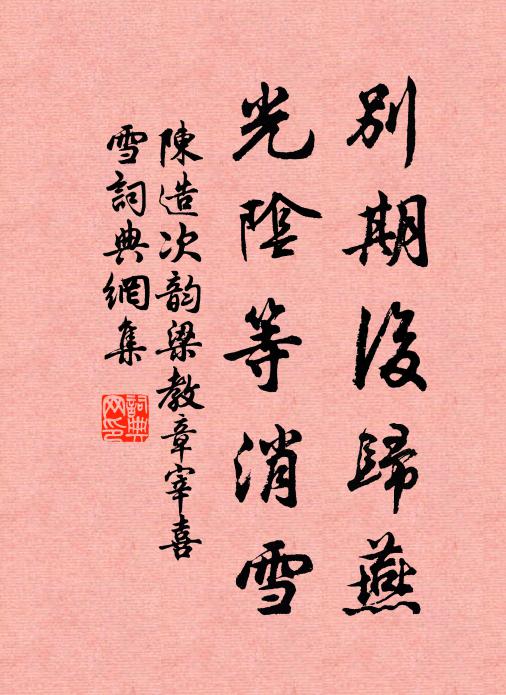 別期後歸燕
光陰等消雪
陳造次韵梁教章宰喜
雪詞典網集
詞典
网印